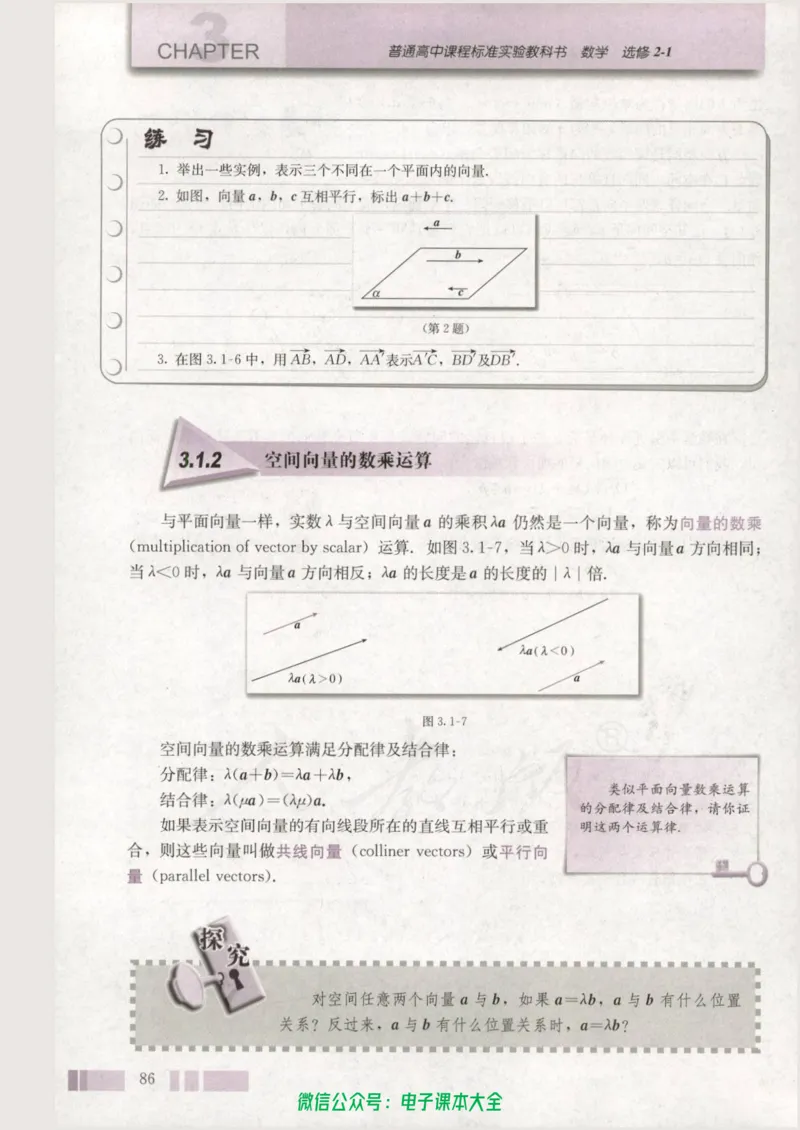 3
CHAPTER
普通高中课程标准实验教科书 数学 选修 2-1
练 习
1. 举出一些实例，表示三个不同在一个平面内的向量.
2. 如图，向量 a，b，c 互相平行，标出 a+b+c.
a
b
α
c
（第 2 题）
3. 在图 3.1-6 中，用 AB，AD，AA′表示A′C，BD′及DB′.
3.1.2 空间向量的数乘运算
与平面向量一样，实数 λ 与空间向量 a 的乘积 λa 仍然是一个向量，称为向量的数乘
（multiplication of vector by scalar）运算. 如图 3.1-7，当 λ>0 时，λa 与向量 a 方向相同；
当 λ<0 时，λa 与向量 a 方向相反；λa 的长度是 a 的长度的 | λ | 倍.
a
λa(λ>0)
λa(λ<0)
a
图 3.1-7
空间向量的数乘运算满足分配律及结合律：
分配律：λ(a+b)=λa+λb，
结合律：λ(μa)=(λμ)a.
如果表示空间向量的有向线段所在的直线互相平行或重
合，则这些向量叫做共线向量（colliner vectors）或平行向
量（parallel vectors）.
类似平面向量数乘运算
的分配律及结合律，请你证
明这两个运算律.
探究
对空间任意两个向量 a 与 b，如果 a=λb，a 与 b 有什么位置
关系？反过来，a 与 b 有什么位置关系时，a=λb？
86
微信公众号：电子课本大全